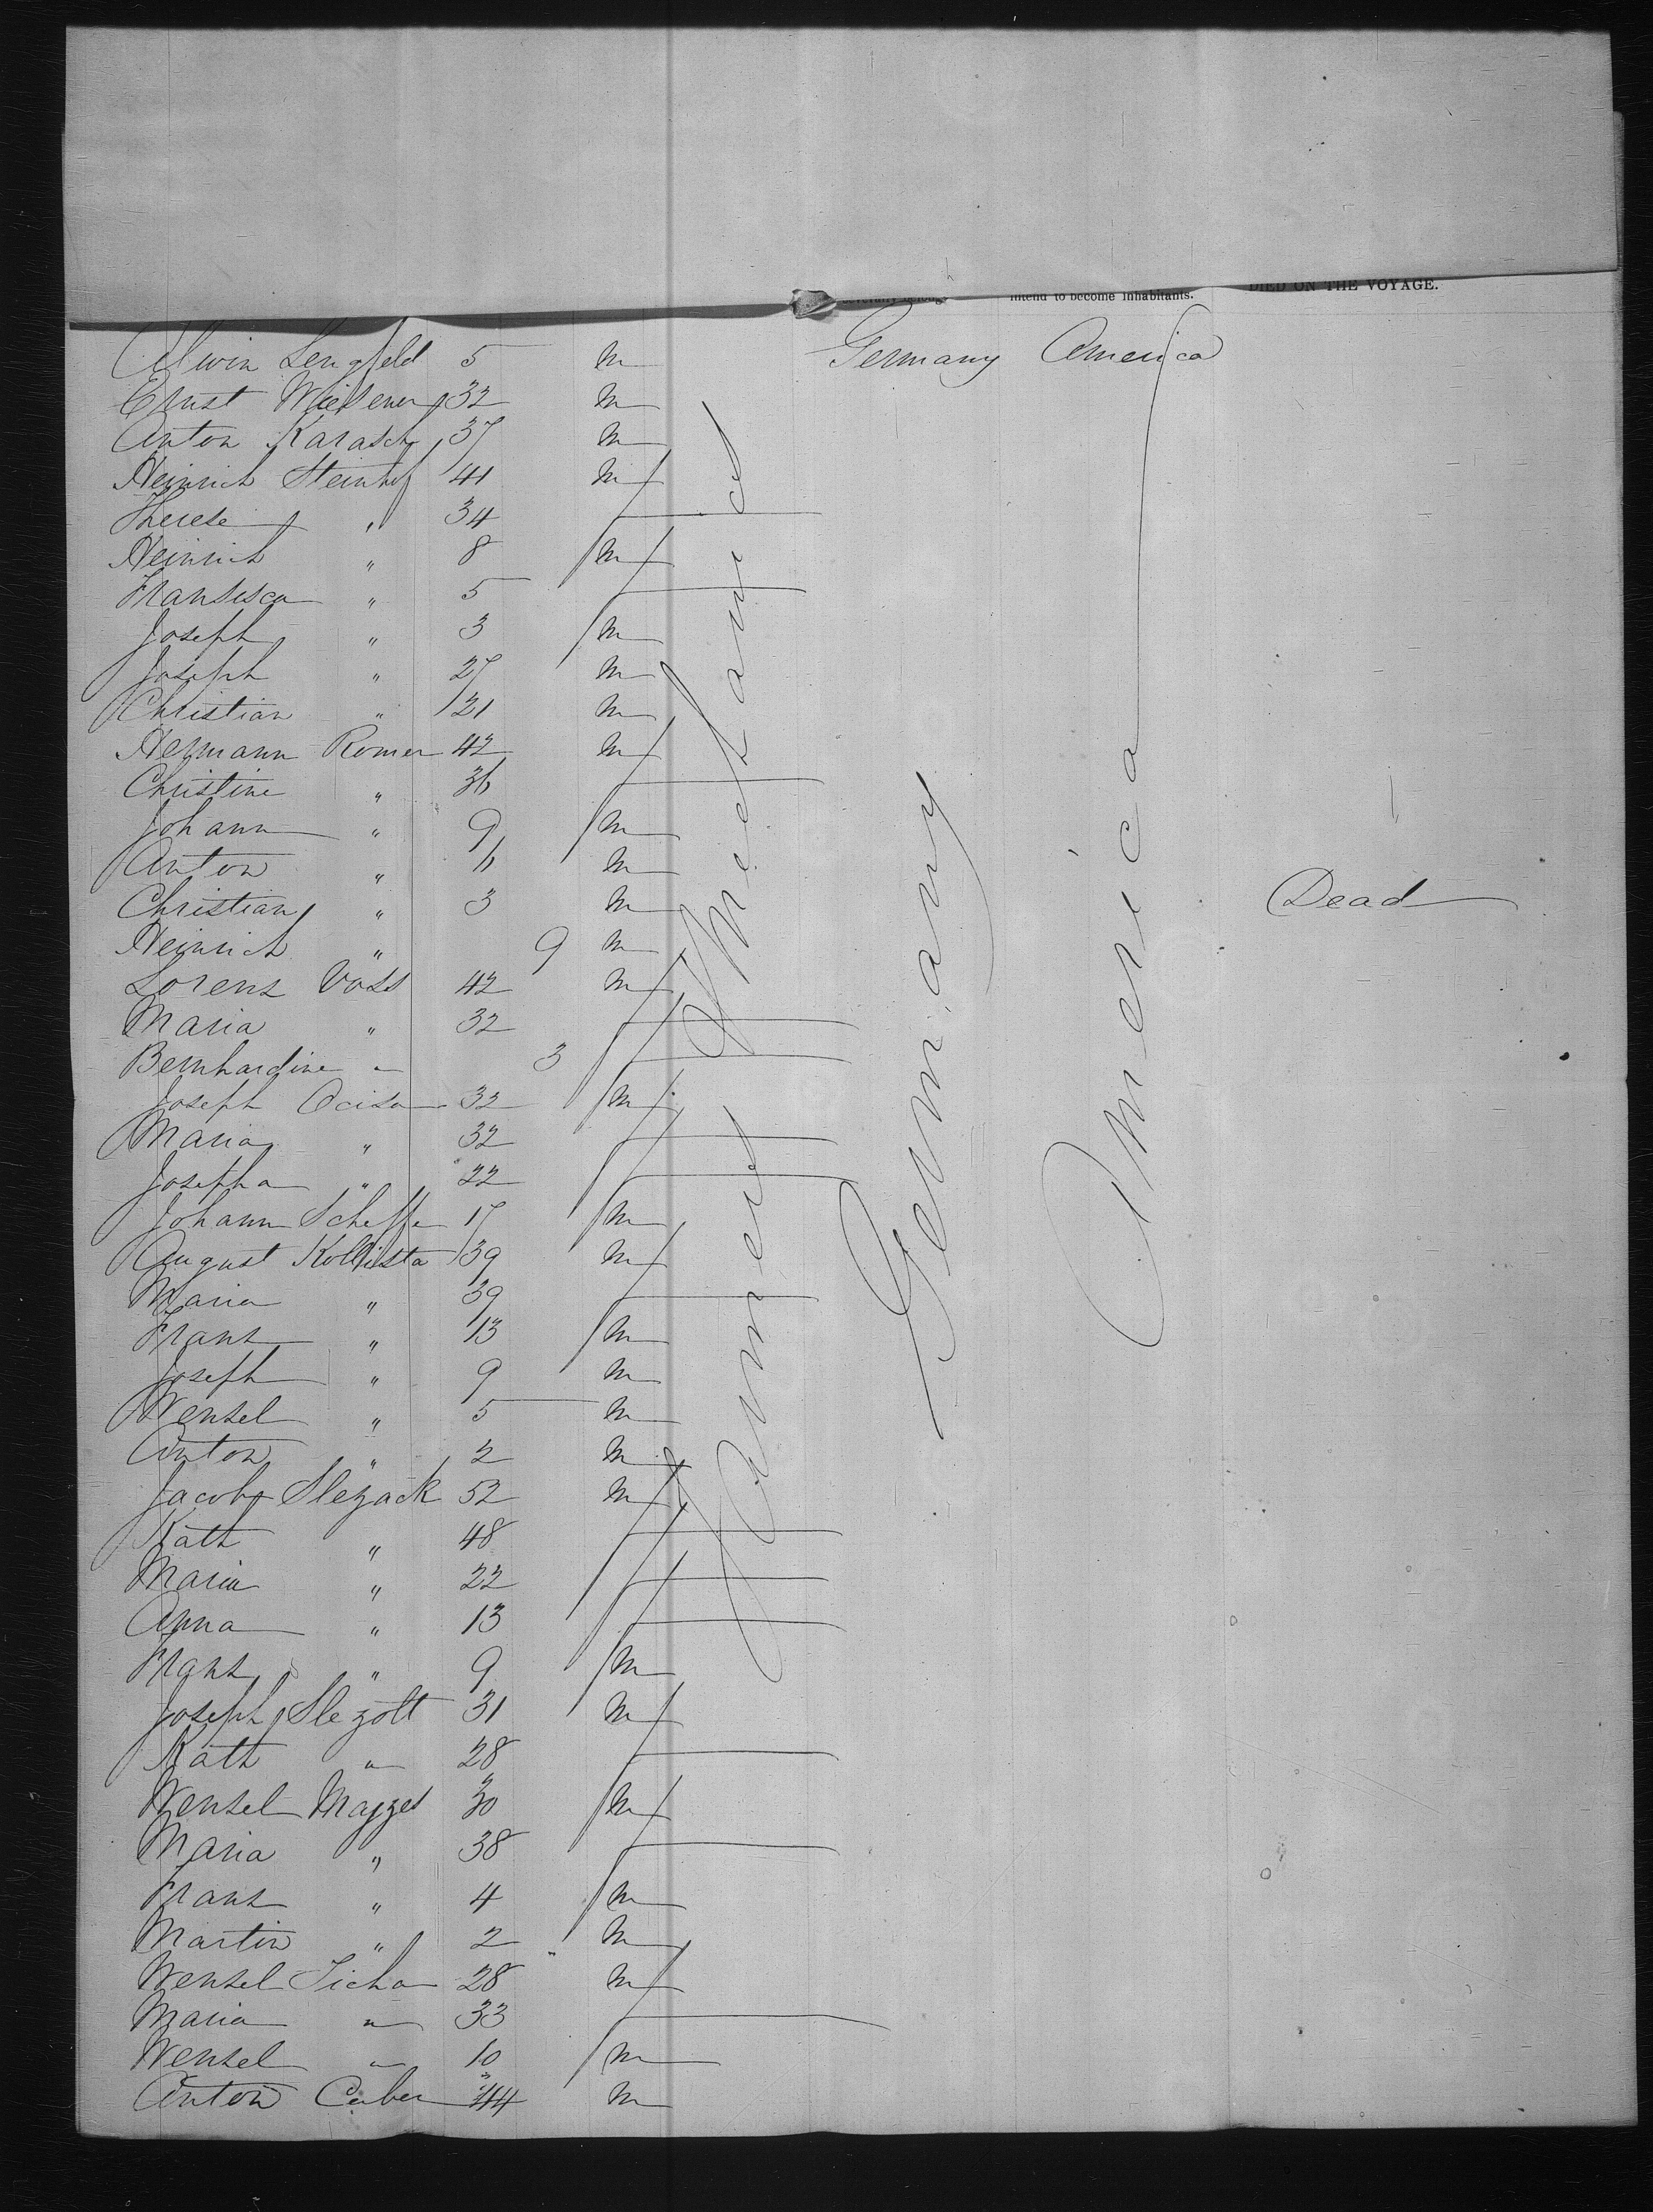 intend to become inhabitants. DIED ON THE VOYAGE.
Alwin Lengfeld 5 m Germany America
Ernst Wiesener 32 m
Anton Karasch 37 m
Heinrich Steinhof 41 m
Therese " 34 f
Heinrich " 8 m
Fransisca " 5 f
Joseph " 3 m
Joseph " 27 m
Christian " 21 m
Hermann Romer 42 m
Christine " 36 f
Johann " 9 m
Anton " 6 m
Christian " 3 m Dead
Heinrich " 9 m
Lorenz Voss 42 m
Maria " 32 f
Bernhardine " 3 f
Joseph 32 m
Maria " 32 f
Josepha " 22 f
Johann Scheffe 17 m
August Kollista 39 m
Maria " 39 f
Franz " 13 m
Joseph " 9 m
Wenzel " 5 m
Anton " 2 m
Jacob Slezack 52 m
Kath " 48 f
Maria " 22 f
Anna " 13 f
Franz " 9 m
Joseph Slezolt 31 m
Kath " 28 f
Wenzel 30 m
Maria " 38 f
Franz " 4 m
Martin " 2 m
Wenzel Ticha 28 m
Maria " 33 f
Wenzel " 10 m
Anton 44 m
Farmers & Mechanics
Germany
America